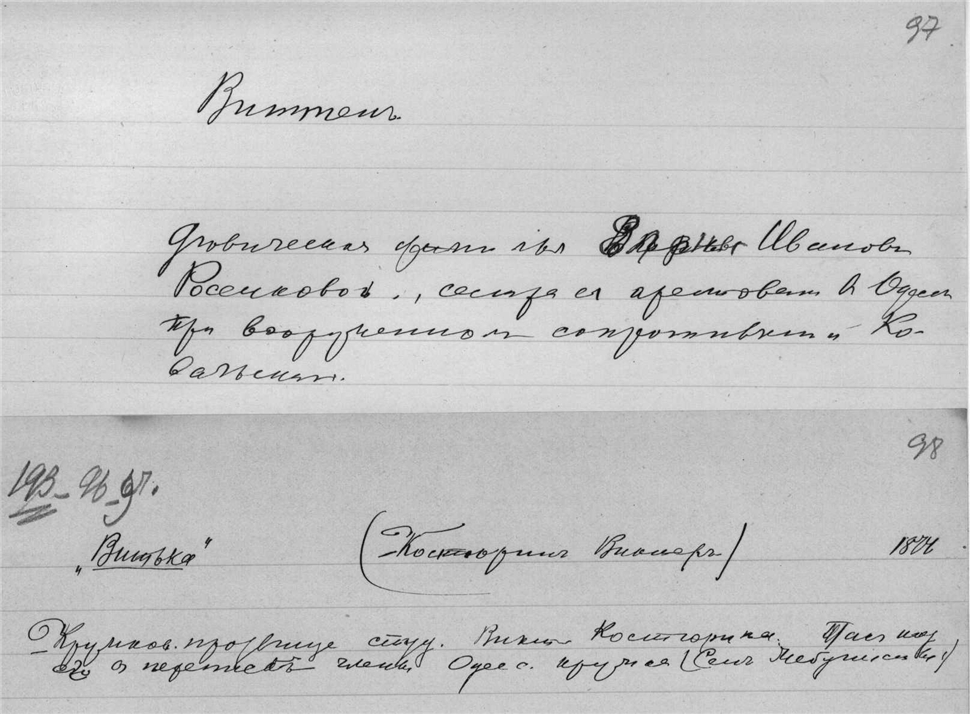 97
Виттенъ
Девическая фамилия Варвары Ивановны
Росейковой., сестра ея арестована в Одессе
при вооруженном сопротивлении Ко-
вальскаго.
98
193-96-97.
„Витька“ (Костюринъ Викторъ) 1874
Кружков. прозвище студ. Виктора Костюрина. Такъ
его в переписке члены Одесс. кружка (